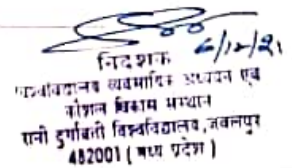 6/12/21
निदेशक
व्यवसायिक अध्ययन एवं
कौशल विकास संस्थान
रानी दुर्गावती विश्वविद्यालय, जबलपुर
482001 ( मध्य प्रदेश )